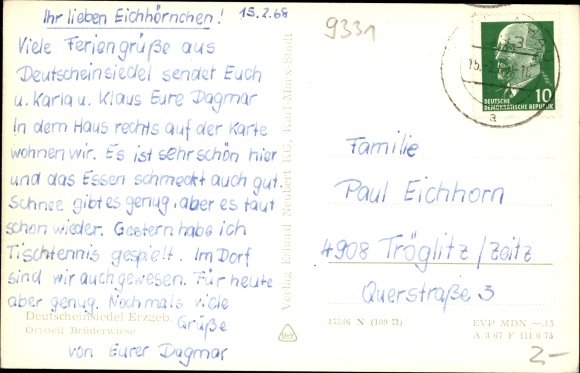 Ihr lieben Eichhörnchen! 15.2.68
Viele Feriengrüße aus
Deutscheinsiedel sendet Euch
u. Karla u. Klaus Eure Dagmar
In dem Haus rechts auf der Karte
wohnen wir. Es ist sehr schön hier
und das Essen schmeckt auch gut.
Schnee gibt es genug, aber es taut
schon wieder. Gestern habe ich
Tischtennis gespielt. Im Dorf
sind wir auch gewesen. Für heute
aber genug. Nochmals viele
Grüße
von Eurer Dagmar
Deutscheinsiedel Erzgeb.
Ortsteil Brüderwiese
Verlag Erhard Neubert KG, Karl-Marx-Stadt
9331
10
DEUTSCHE
DEMOKRATISCHE REPUBLIK
a
Familie
Paul Eichhorn
4908 Tröglitz/Zeitz
Querstraße 3
EVP MDN —.15
A 3/67 F 111/6/73
2,-